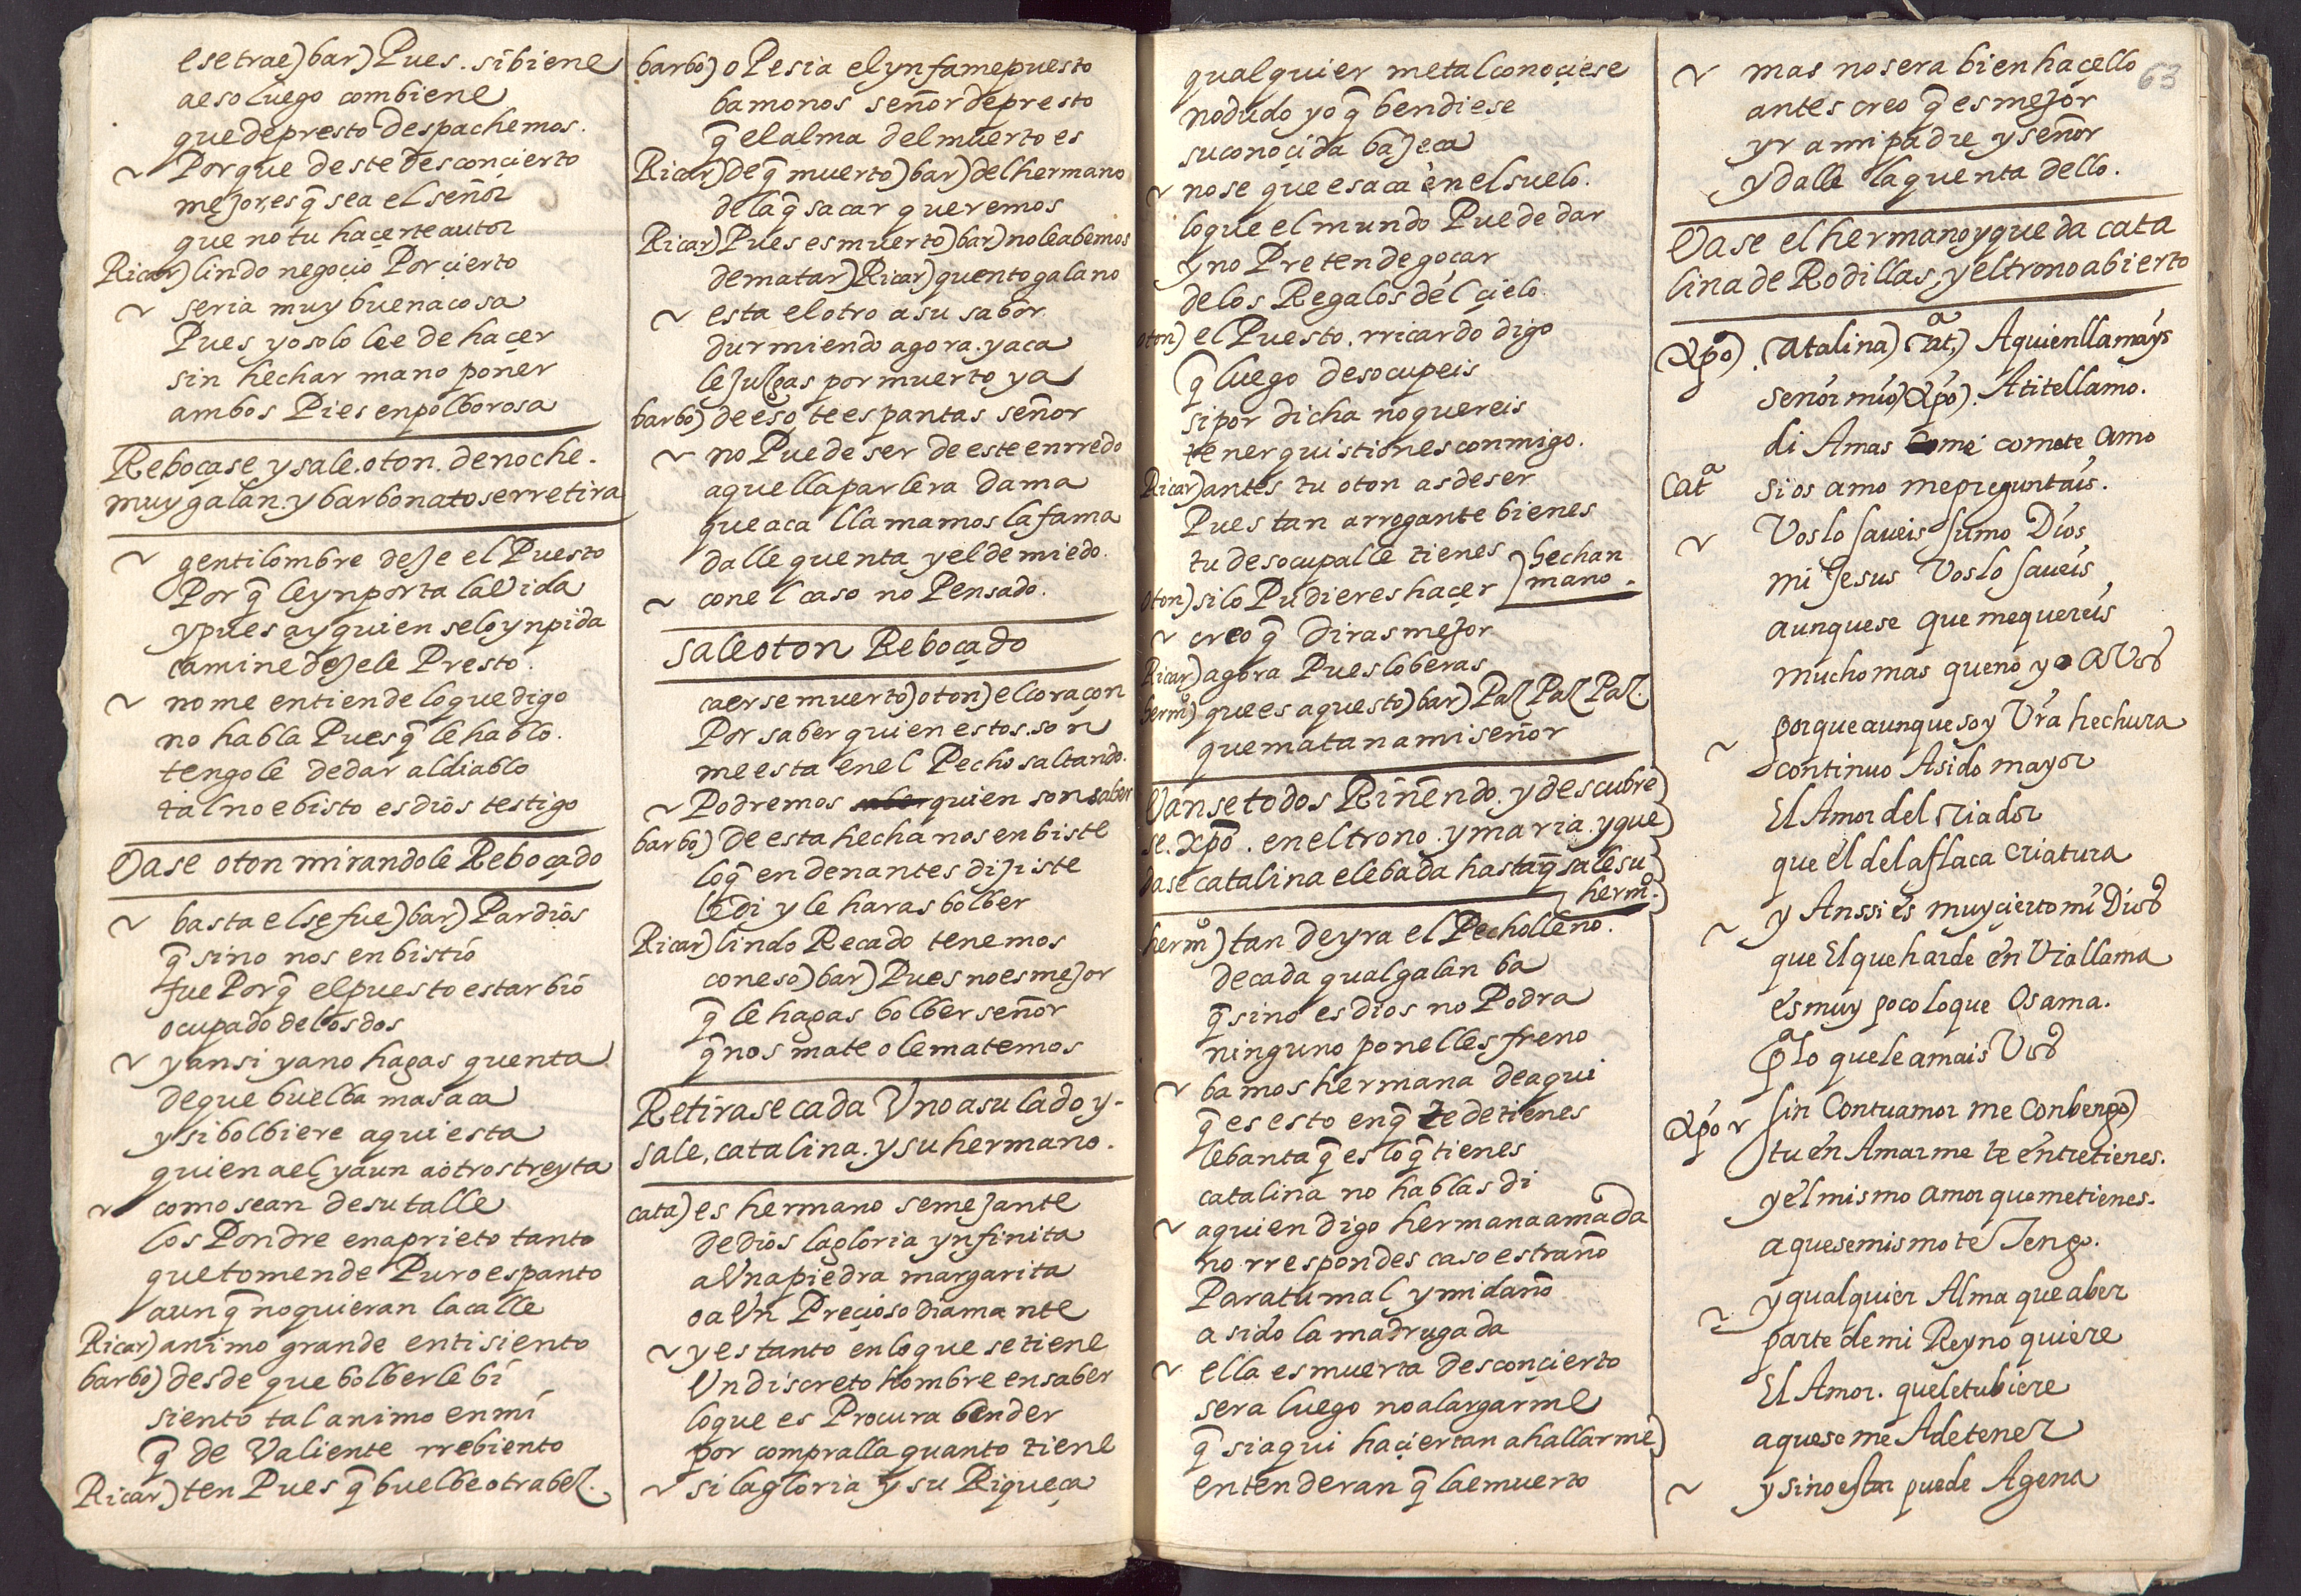 esetrae) bar) Pues. sibiene
aeso luego combiene
que depresto despachemos.
~ Porque deste desconcierto
mejor, es q̃ sea el señor
que no tu hacerte autor
Ricar) lindo negoçio Por çierto
~ seria muy buena cosa
Pues yo solo lee de haçer
sin hechar mano poner
ambos Pies en polborosa
Reboçase, y sale. oton. de noche.
muy galan. y barbonato serretira
~ gentilombre deje el Puesto
Por q̃ le ynporta la Vida
y pues ay quien selo ynpida
camine dejele Presto.
~ no me entiende lo que digo
no habla Pues q̃ le hablo.
tengole de dar al diablo
tal no e bisto es dios testigo
Vase oton mirandole Reboçado
~ basta el se fue) bar) Pardios
q̃ si no nos enbistio
fue Porq̃ el puesto estar bió
ocupado de los dos
~ y ansi ya no hagas quenta
de que buelba mas aca
y si bolbiere aqui esta
quien a el, y aun a otros treynta
~ como sean de su talle
los Pondre en aprieto tanto
que tomen de Puro espanto
aunq̃ no quieran la calle
Ricar) animo grande en ti siento
barbo) desde que bolberle bi
siento tal animo en mi
q̃ de Valiente rrebiento
Ricar) ten Pues q̃ buelbe otra bez.
barbo) o Pesia el ynfame puesto
bamonos señor de presto
q̃ el alma del muerto es
Ricar) de q̃ muerto) bar) del hermano
de la q̃ sacar queremos
Ricar) Pues es muerto) bar) no le abemos
de matar) Ricar) quento galano
~ esta el otro a su sabor
durmiendo agora. y aca
le juzgas por muerto ya
barbo) de eso te espantas señor
~ no Puede ser de este enrredo
aquella parlera dama
que aca llamamos la fama
dalle quenta y el de miedo.
~ con el caso no Pensado.
sale oton Reboçado
caerse muerto) oton) el coraçon
Por saber quien estos. son
me esta en el Pecho saltando.
~ Podremos quien son saber
barbo) De esta hecha nos enbiste
lo q̃ en denantes dijiste
le di y le haras bolber
Ricar) lindo Recado tenemos
con eso) bar) Pues no es mejor
q̃ le hagas bolber señor
q̃ nos mate o le matemos
Retirase cada Vno a su lado y-
sale, catalina. y su hermano.
cata) es hermano semejante
de dios la gloria ynfinita
a Vna piedra margarita
o a Vn Preçioso diamante
~ y es tanto en lo que se tiene
Vn discreto hombre en saber
lo que es Procura bender
por compralla quanto tiene
~ si la gloria y su Riqueça
qualquier metal conoçiese
no dudo yo q̃ bendiese
su conoçida bajeça
~ no se que es aca en el suelo.
lo que el mundo Puede dar
y no Pretende goçar
de los Regalos del çielo.
oton) el Puesto. rricardo digo
q̃ luego desocupeis
si por dicha no quereis
tener quistiones conmigo.
Ricar) antes tu oton as de ser
Pues tan arrogante bienes
tu desocupalle tienes
oton) si lo Pudieres haçer ) hechan mano.
~ creo q̃ diras mejor
Ricar) agora Pues lo beras
hermo) que es aquesto) bar) Paz Paz Paz.
que matan a mi señor
Vanse todos Riñendo. y descubre
se. xpo. en el trono. y maria. y que
dase catalina elebada hasta q̃ sale su
hermo.
hermo) tan de yra el Pecho lleno.
de cada qual galan ba
q̃ si no es dios no Podra
ninguno ponelles freno
~ bamos hermana de aqui
q̃ es esto en q̃ te detienes
lebanta q̃ es lo q̃ tienes
catalina no hablas di
~ a quien digo hermana amada
no rrespondes caso estraño
Para tu mal y mi daño
a sido la madrugada
~ ella es muerta desconçierto
sera luego no alargarme
q̃ si aqui haçiertan a hallarme)
entenderan q̃ la e muerto
63
~ mas no sera bien hacello
antes creo q̃ es mejor
yr a mi padre y señor
y dalle la quenta dello.
Vase el hermano y queda cata
lina de Rodillas, y el trono abierto
Xpo). Catalina) Cata.) A quien llamays
señor mio) Xpo). A ti te llamo.
di Amas me como te amo
Cata si os amo me preguntais.
~ Vos lo saueis sumo Dios
mi Jesus Vos lo saueis
aunque se que me quereis
mucho mas que no yo a Vos
~ porque aunque soy Vra hechura
continuo A sido mayor
El Amor del criador
que el de la flaca criatura
~ y Anssi es muy cierto mi Dios
que El que harde en Vra llama
es muy poco lo que Os ama.
pa lo que le amais Vos
Xpo ~ sin Con tu amor me Conbengo)
tu en Amarme te entretienes.
y el mismo amor que me tienes.
a quese mismo te Tengo.
~ y qualquier Alma que aber
parte de mi Reyno quiere
El Amor. que le tubiere
aquese me A de tener
~ y si no estar puede Agena